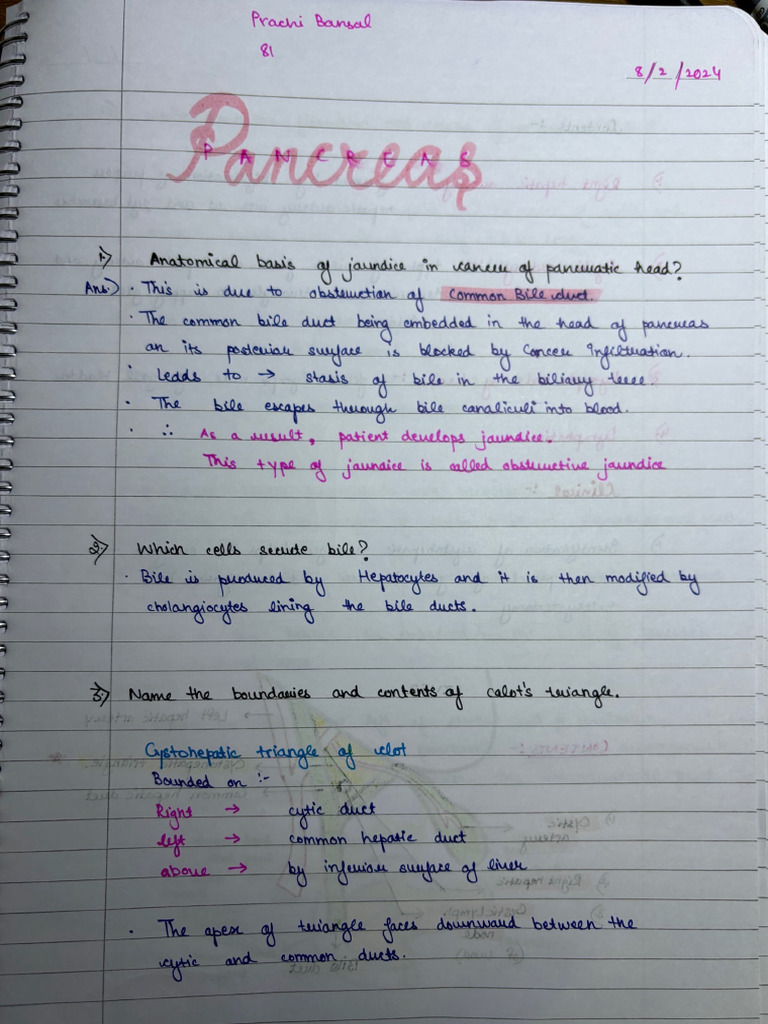 Prachi Bansal
81
8/2/2024
Pancreas
PANCREAS
1.) Anatomical basis of jaundice in cancer of pancreatic head?
Ans.) · This is due to obstruction of Common Bile duct.
· The common bile duct being embedded in the head of pancreas
on its posterior surface is blocked by Cancer Infiltration.
· Leads to → stasis of bile in the biliary tree
· The bile escapes through bile canaliculi into blood.
· ∴ As a result, patient develops jaundice.
This type of jaundice is called obstructive jaundice
2.) Which cells secrete bile?
· Bile is produced by Hepatocytes and it is then modified by
cholangiocytes lining the bile ducts.
3.) Name the boundaries and contents of calot's triangle.
Cystohepatic triangle of clot
Bounded on :-
Right → cytic duct
left → common hepatic duct
above → by inferior surface of liver
· The apex of triangle faces downward between the
cytic and common ducts.